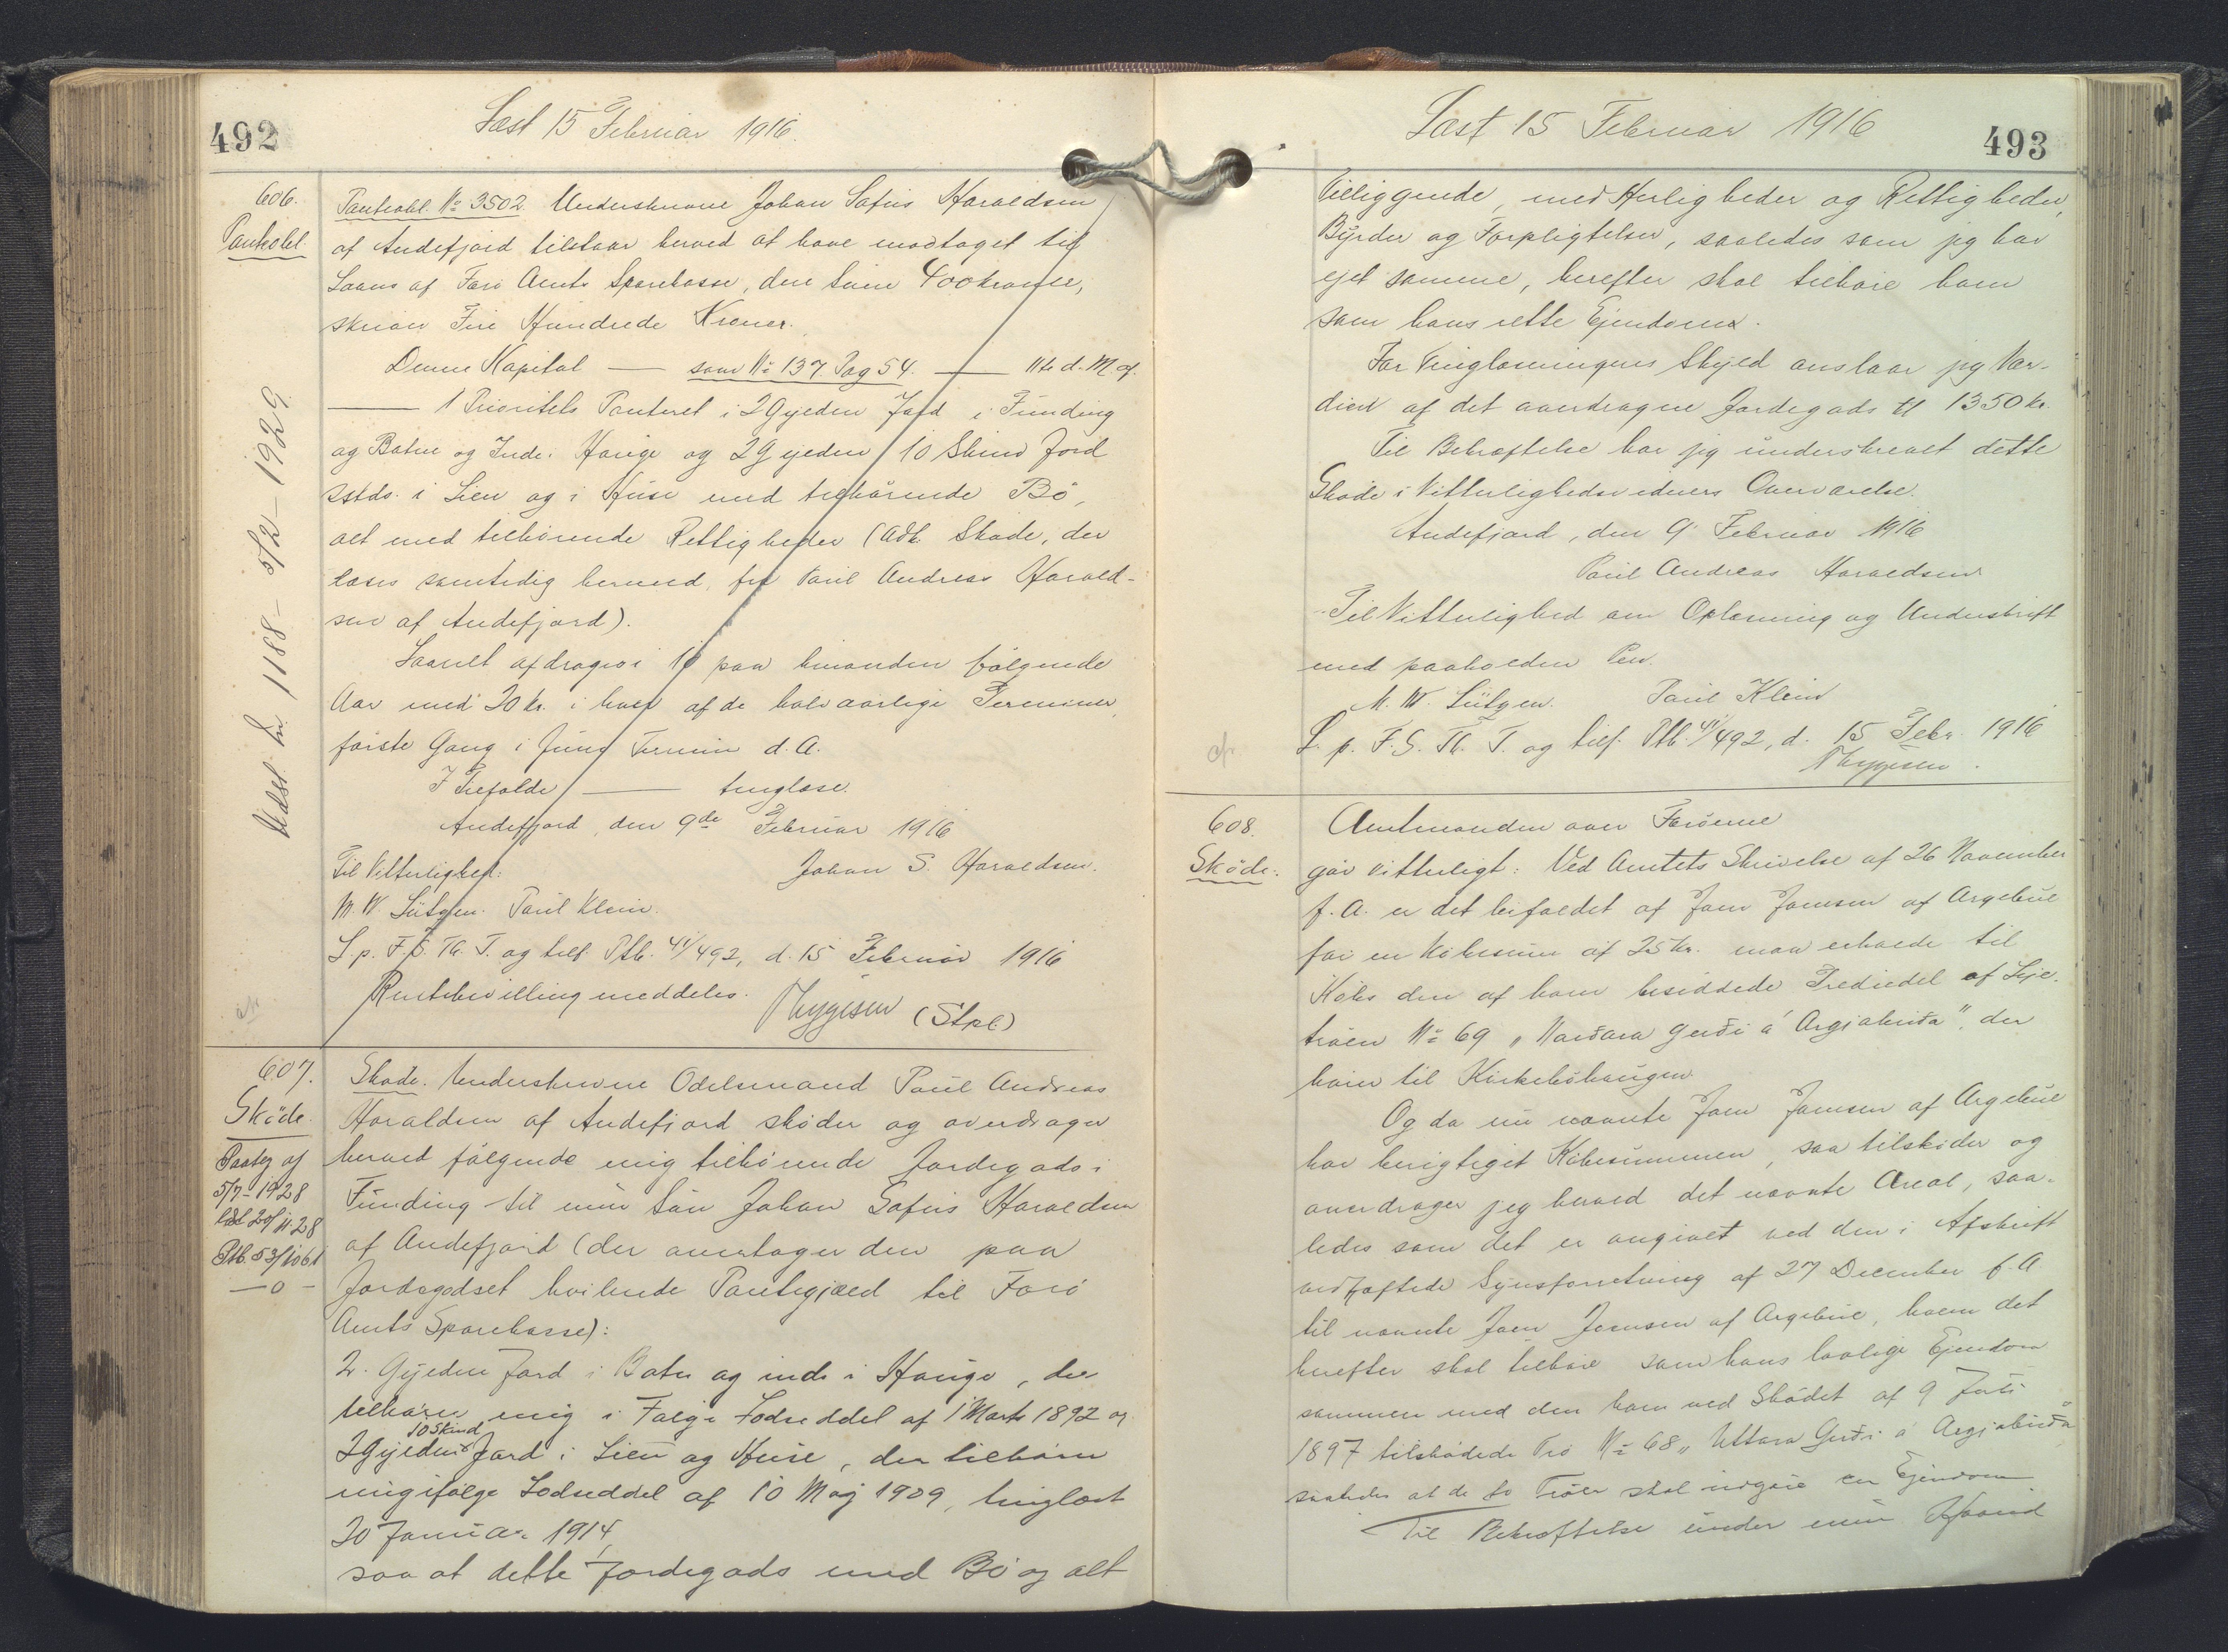 492
Læst 15 Februar 1916.
606.
Pantobl.
Udsl. Ln. 1188 - 5/2 - 1929
Pantobl. No 3502. Underskrevne Johan Sofus Haraldsen
af Andefjord tilstaar herved at have modtaget til
Laans af Færø Amts Sparekasse, den Sum 400 kroner,
skriver Fire Hundrede Kroner.
Denne Kapital — som No 137 Pag 54. — 11te d. M. af
— 1 Prioritets Panteret i 2 Gyeden Jord i Funding
og Botne og Inde i Hauge og 2 Gyeden 10 Skind Jord
sstds. i Lien og i Huse med tilhørende Bø,
alt med tilhørende Rettigheder (Adk. Skøde, der
læses samtidig hermed, fra Poul Andreas Harald-
sen af Andefjord).
Laanet afdrages i 10 paa hinanden følgende
Aar med 20 kr. i hver af de halvaarlige Terminer,
første Gang i Juny Termin d. A.
I Tilfælde — tinglæse.
Andefjord, den 9de Februar 1916
Til Vitterlighed: Johan S. Haraldsen.
M. W. Lützen. Poul Klein.
L. p. F. S. Th. T. og tilf. Ptb. 41/492, d. 15 Februar 1916
Rentebevilling meddeles. Thygesen (Stpl.)
607.
Skøde.
Paateg af
5/7-1928
læst 20/11.28
Ptb. 53/1061
—o—
Skøde. Underskrevne Odelsmand Poul Andreas
Haraldsen af Andefjord skøder og overdrager
herved følgende mig tilhørende Jordegods i
Funding til min Søn Johan Sofus Haraldsen
af Andefjord (der overtager den paa
Jordegodset hvilende Pantegjæld til Færø
Amts Sparekasse):
2 Gyeden Jord i Botne og inde i Hauge, der
tilhører mig i Følge Lodseddel af 1 Marts 1892 og
2 Gyeden 10 Skind Jord i Lien og Huse, der tilhører
mig ifølge Lodseddel af 10 Maj 1909, tinglæst
30 Januar 1914,
saa at dette Jordegods med Bø og alt
Læst 15 Februar 1916
493
Tilliggende, med Herligheder og Rettigheder,
Byrder og Forpligtelser, saaledes som jeg har
ejet samme, herefter skal tilhøre ham
som hans rette Ejendom.
For Tinglæsningens Skyld anslaar jeg Vær-
dien af det overdragne Jordegods til 1350 kr.
Til Bekræftelse har jeg underskrevet dette
Skøde i Vitterlighedsvidners Overværelse.
Andefjord, den 9. Februar 1916
Poul Andreas Haraldsen
Til Vitterlighed om Oplæsning og Underskrift
med paaholden Pen.
M. W. Lützen. Poul Klein
L. p. F. S. Th. T. og tilf. Ptb. 41/492, d. 15 Febr. 1916
Thygesen.
608.
Skøde.
Amtmanden over Færøerne
gør vitterligt: Ved Amtets Skrivelse af 26 November
f. A. er det bifaldet at Joen Joensen af Argebue
for en Købesum af 25 kr. maa erholde til
Købs den af ham besiddede Trediedel af Leje-
trøen No 69 "Nordara Gerði á Argjaboða", der
hører til Kirkebøhaugen.
Og da nu nævnte Joen Joensen af Argebue
har berigtiget Købesummen, saa tilskøder og
overdrager jeg herved det nævnte Areal, saa-
ledes som det er angivet ved den i Afskrift
vedhæftede Synsforretning af 27 December f. A.
til nævnte Joen Joensen af Argebue, hvem det
herefter skal tilhøre som hans lovlige Ejendom
sammen med den ham ved Skødet af 9 Juli
1897 tilskødede Trø No 68 "Uttara Gerði á Argjaboða"
saaledes at de to Trøer skal udgøre een Ejendom
Til Bekræftelse under min Haand